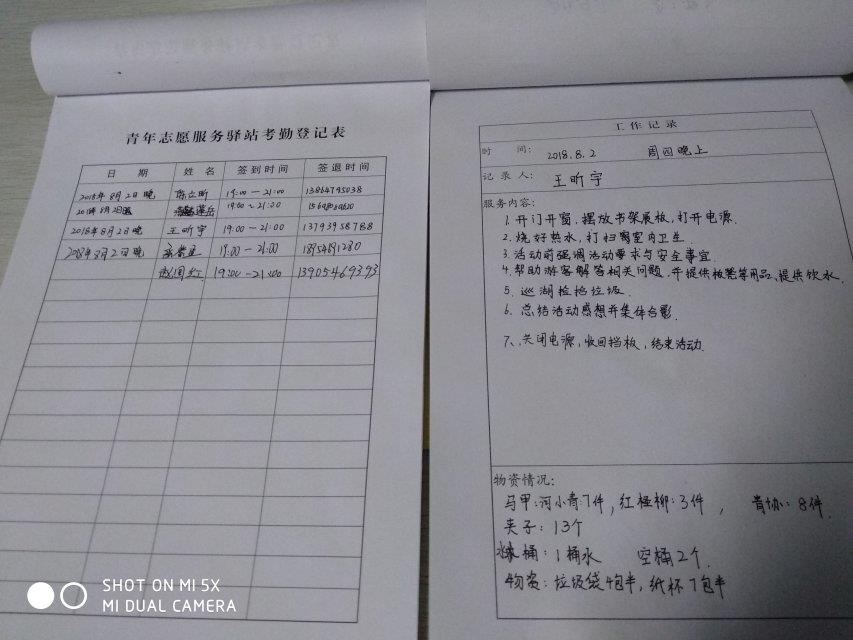 青年志愿服务驿站考勤登记表
日 期 姓 名 签到时间 签退时间
2018年8月2日晚 19:00-21:00
2018年8月2日晚 19:00-21:00
2018年8月2日晚 王昕宇 19:00-21:00 13793958788
2018年8月2日晚 19:00-21:00
19:00-21:00 13905469393
工作记录
时 间: 2018.8.2 周四晚上
记录人: 王昕宇
服务内容:
1. 开门开窗,摆放书架展板,打开电源.
2. 烧好热水,打扫室内卫生.
3. 活动前强调活动要求与安全事宜.
4. 帮助游客解答相关问题,并提供板凳等用品,提供饮水.
5. 巡湖捡拾垃圾
6. 总结活动感想并集体合影.
7、关闭电源,收回挡板,结束活动.
物资情况:
马甲:河小青:7件,红柽柳:3件, 青协:8件.
夹子:13个
水桶:1桶水 空桶2个.
物资:垃圾袋4包半,纸杯7包半
SHOT ON MI 5X
MI DUAL CAMERA